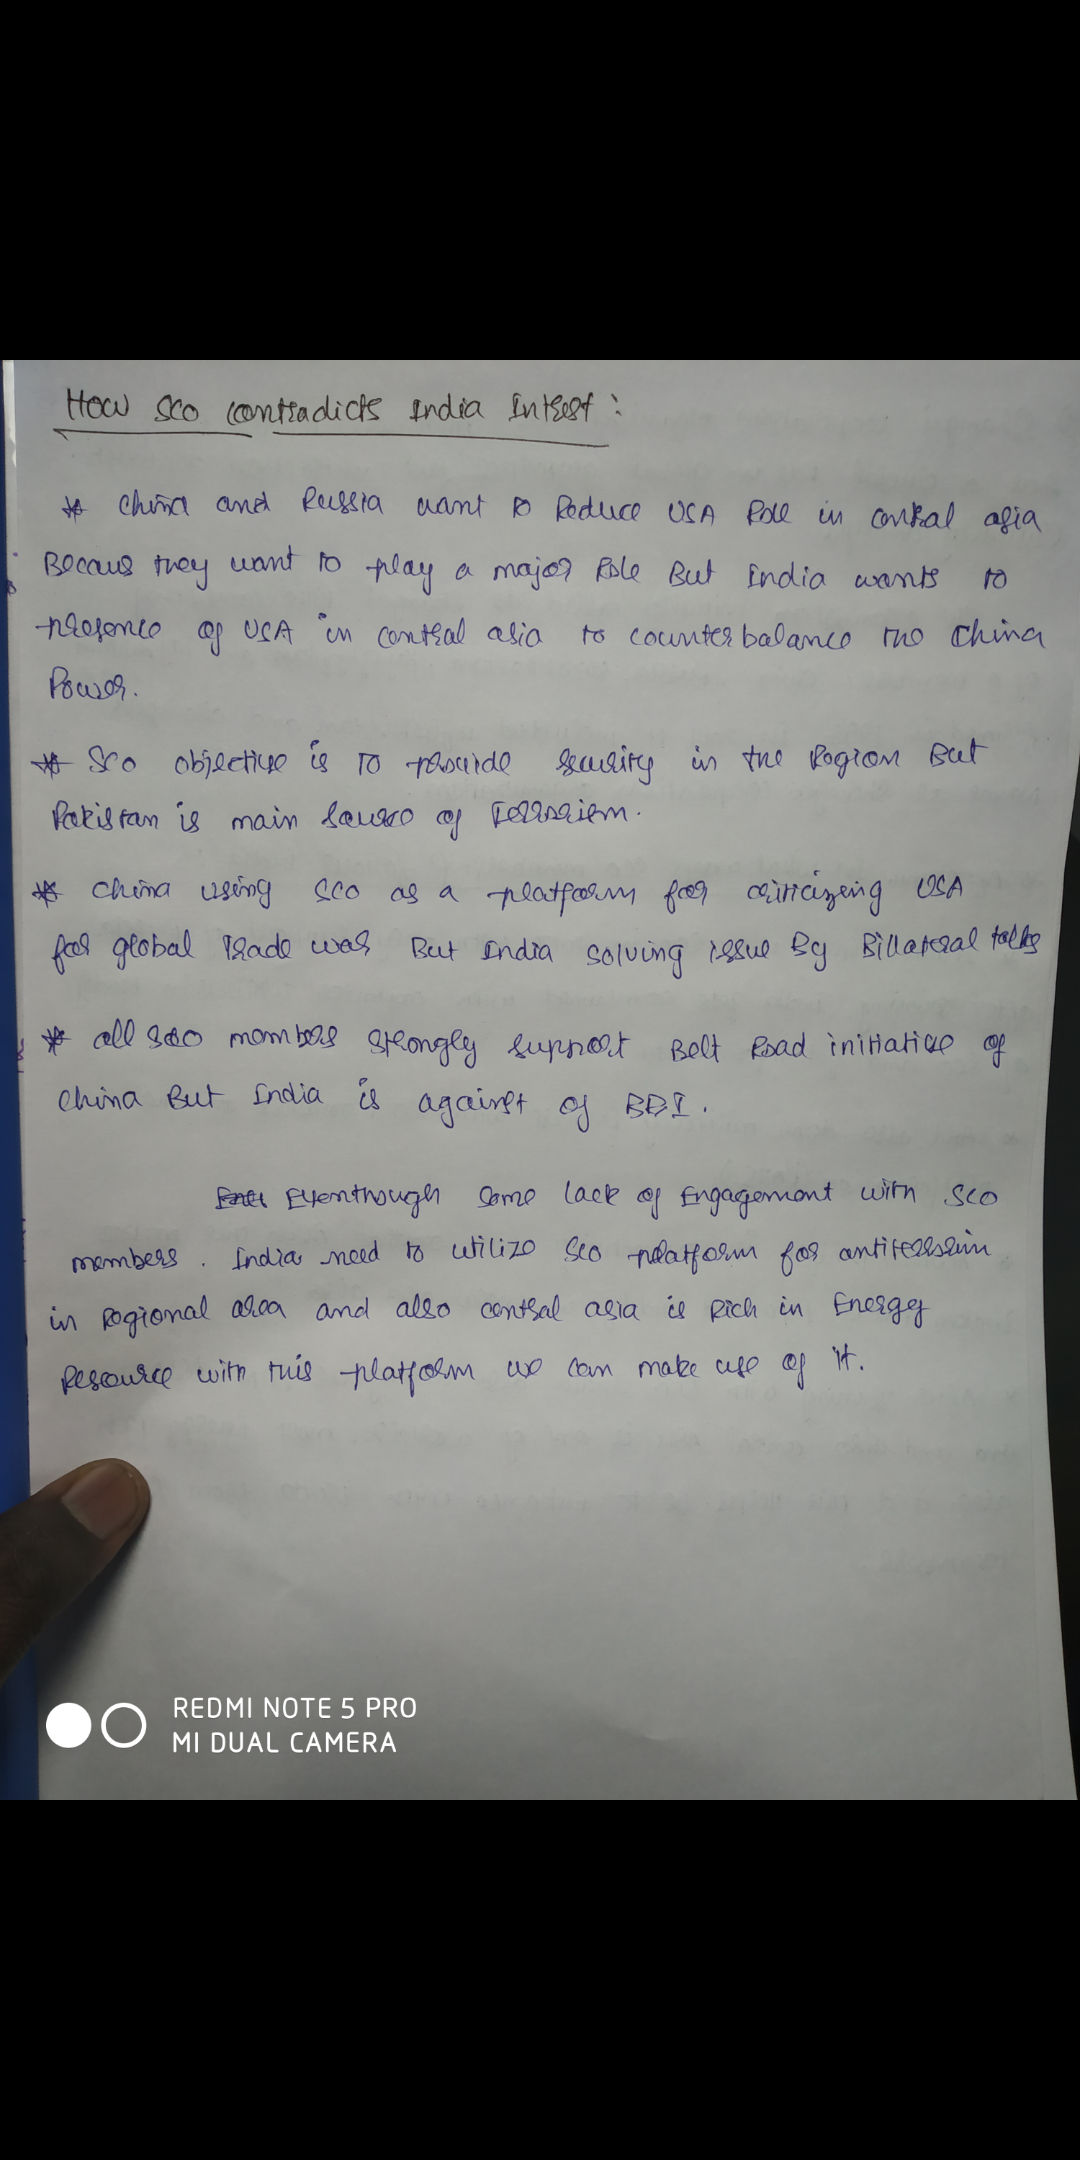 How SCO contradicts India Intrest :
* China and Russia want to Reduce USA Role in central asia
Becaus they want to play a major Role But India wants to
presence of USA in central asia to counterbalance the China
Power.
* SCO objective is to provide security in the Region But
Pakistan is main source of Terrorism.
* China using SCO as a platform for criticizing USA
for global trade war But India solving issue By Billateral talks
* all SCO members strongly support Belt Road initiative of
China But India is against of BRI.
Eventhough some lack of Engagement with SCO
members. India need to utilize SCO platform for antiterrorism
in Regional area and also central asia is Rich in Energy
Resource with this platform we can make use of it.
REDMI NOTE 5 PRO
MI DUAL CAMERA